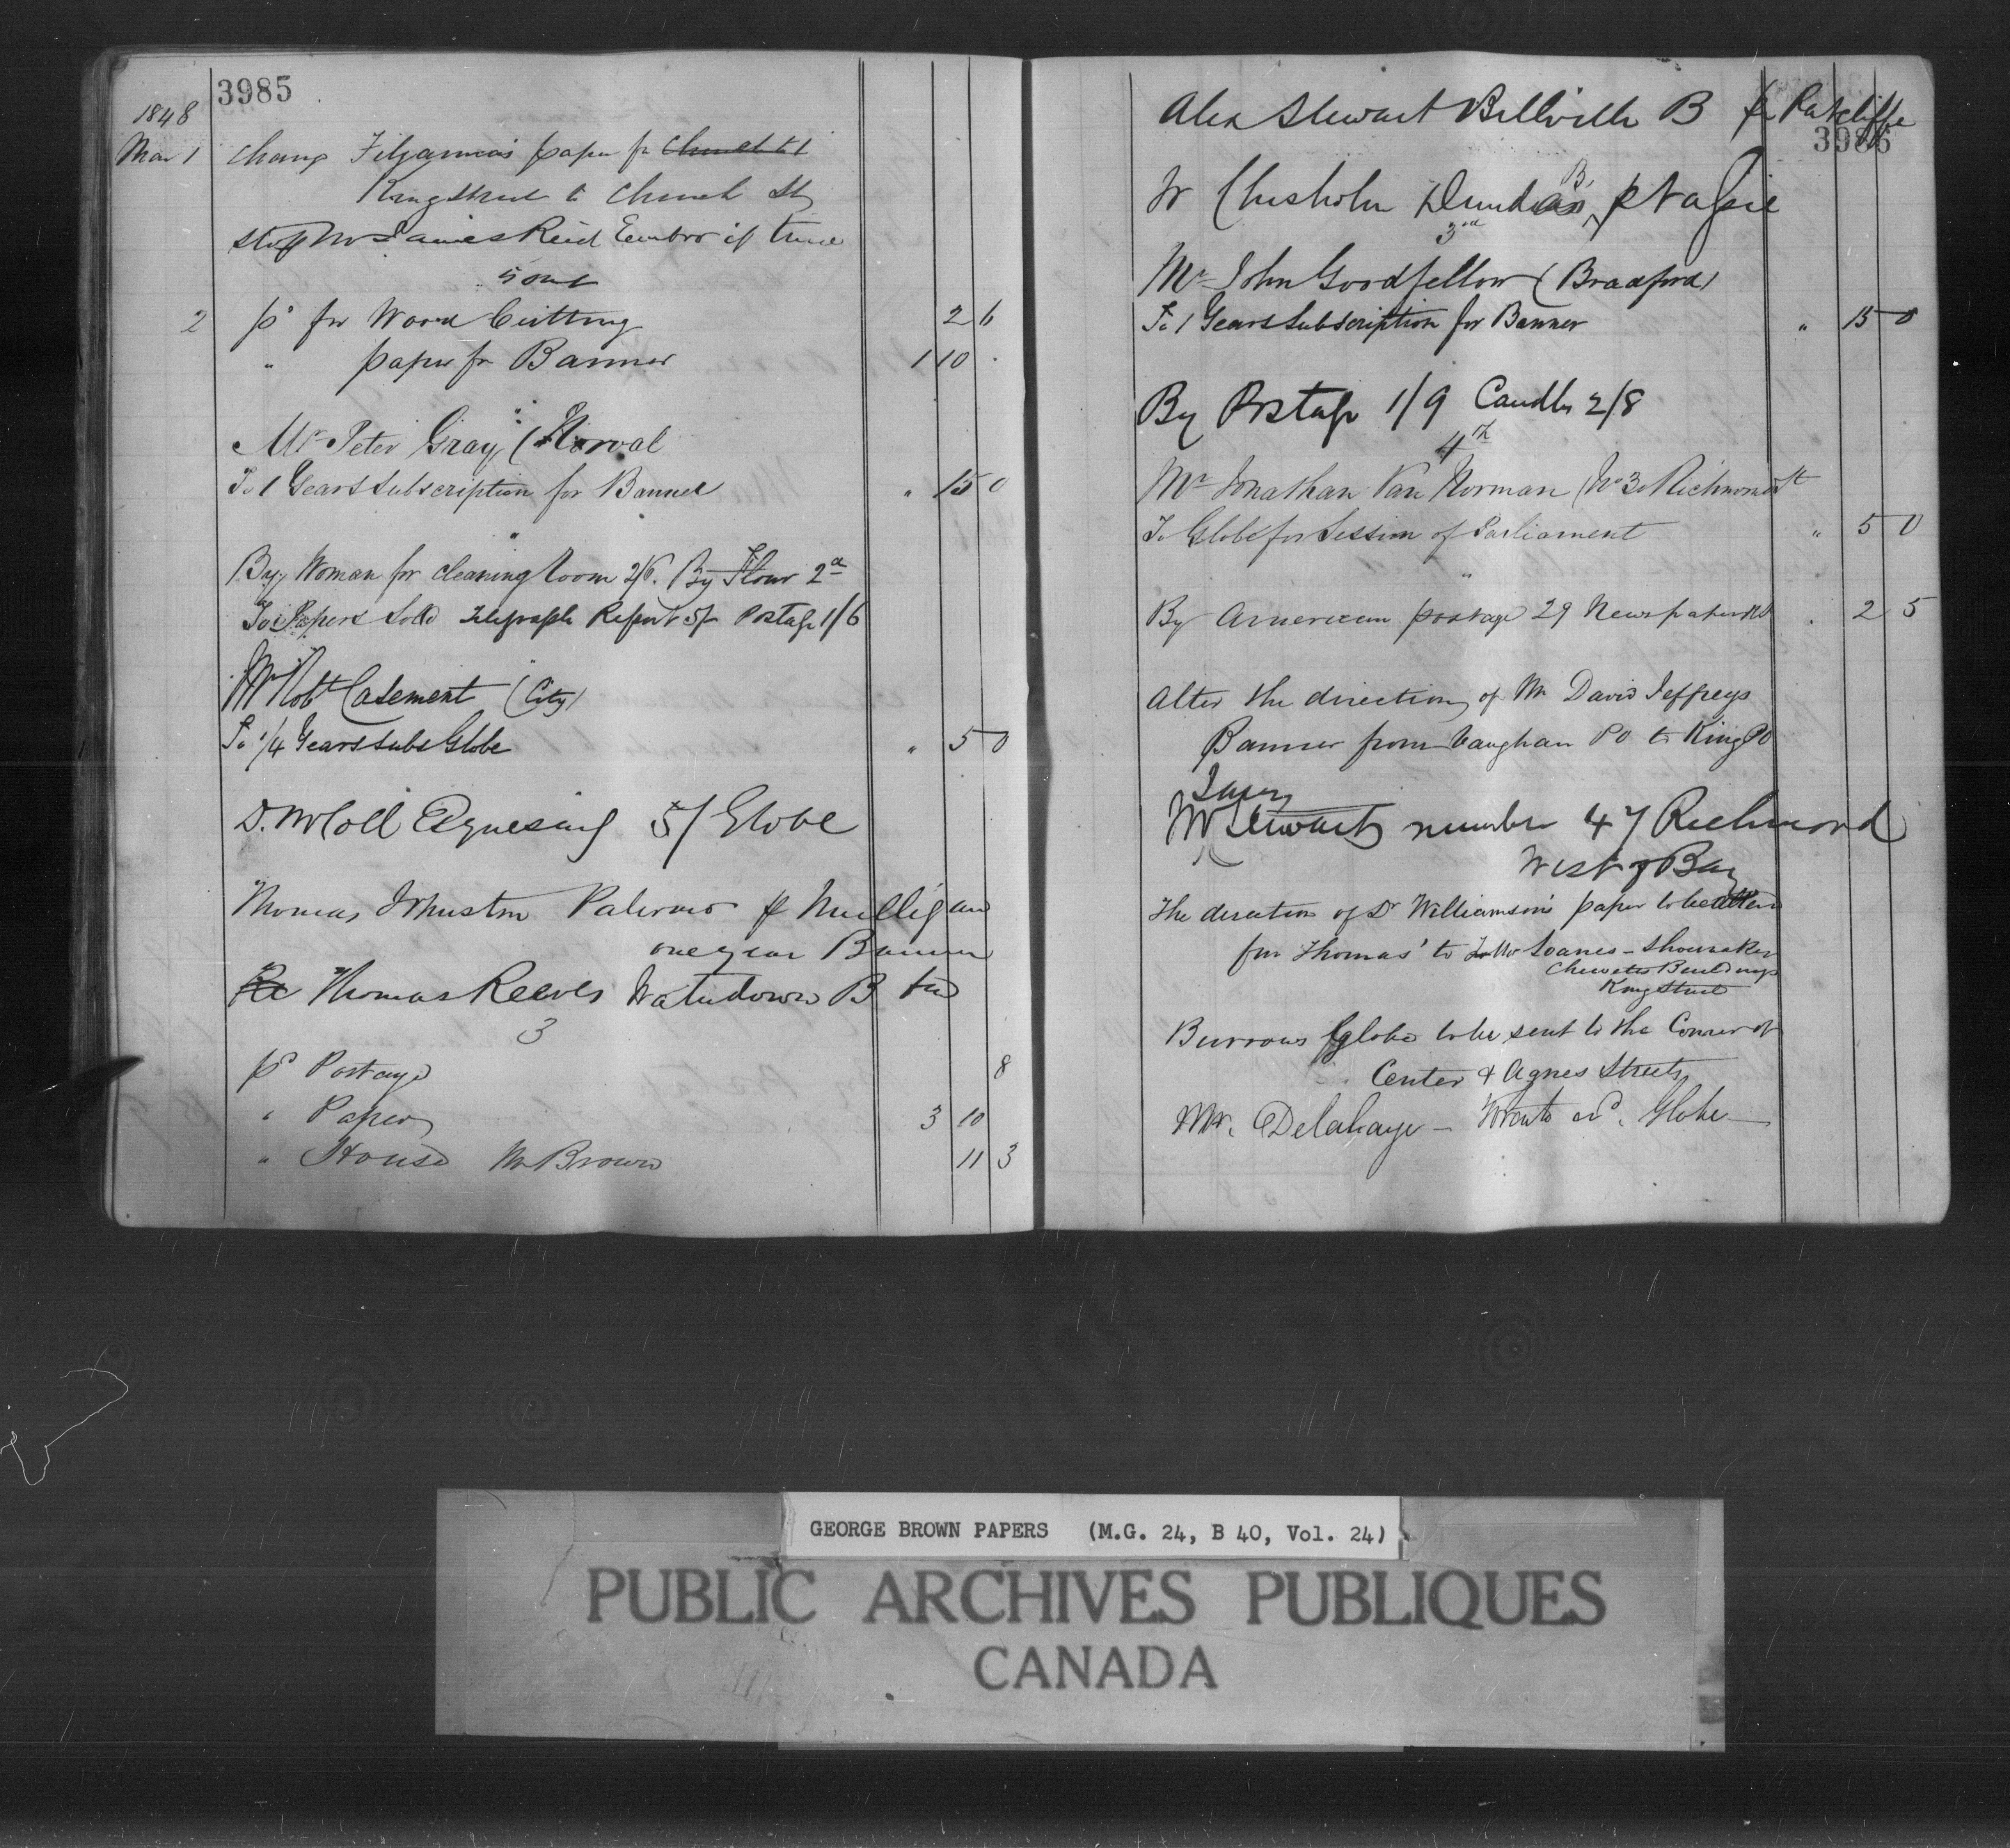 3985
1848
Mar 1 Change paper fr Church to
King Street to Church St
Stop Mr James Reid Embro if time
is out
2 pd for Wood Cutting 2 6
" paper for Banner 1 10 .
"
Mr Peter Gray (Norval
To 1 Years Subscription for Banner " 15 0
"
By Woman for cleaning Room 2/6. By Flour 2d
To Papers Sold Telegraph Report 5/ Postage 1/6
"
Mr Robt Casement (City)
To 1/4 Years Subs Globe " 5 0
D. McColl Esquesing 5/ Globe
Thomas Johnston Palermo pr Mulligan
one year Banner
Thomas Reeves Waterdown B
3
pd Postage 8
" Paper 3 10
" House Mr Brown 11 3
3986
Alex Stewart Bellville B pr Ratcliffe
W Chisholm Dundas B, p
3rd
Mr John Goodfellow (Bradford)
To 1 Years Subscription for Banner " 15 0
By Postage 1/9 Candles 2/8
4th
Mr Jonathan Van Norman (No 30 Richmond St
To Globe for Session of Parliament " 5 0
"
By American postage 29 Newspapers . 2 5
Alter the direction of Mr David Jeffreys
Banner from Vaughan PO to King PO
Mr Stewart number 47 Richmond
West of Bay
The direction of Dr Williamson's paper to be altered
from Thomas' to Mr Soanes - Shoemaker
Chewetts Buildings
King Street
Burrows globe to be sent to the Corner of
Center & Agnes Streets
Mr. Delahaye - Toronto ad. Globe -
GEORGE BROWN PAPERS (M.G. 24, B 40, Vol. 24)
PUBLIC ARCHIVES PUBLIQUES
CANADA